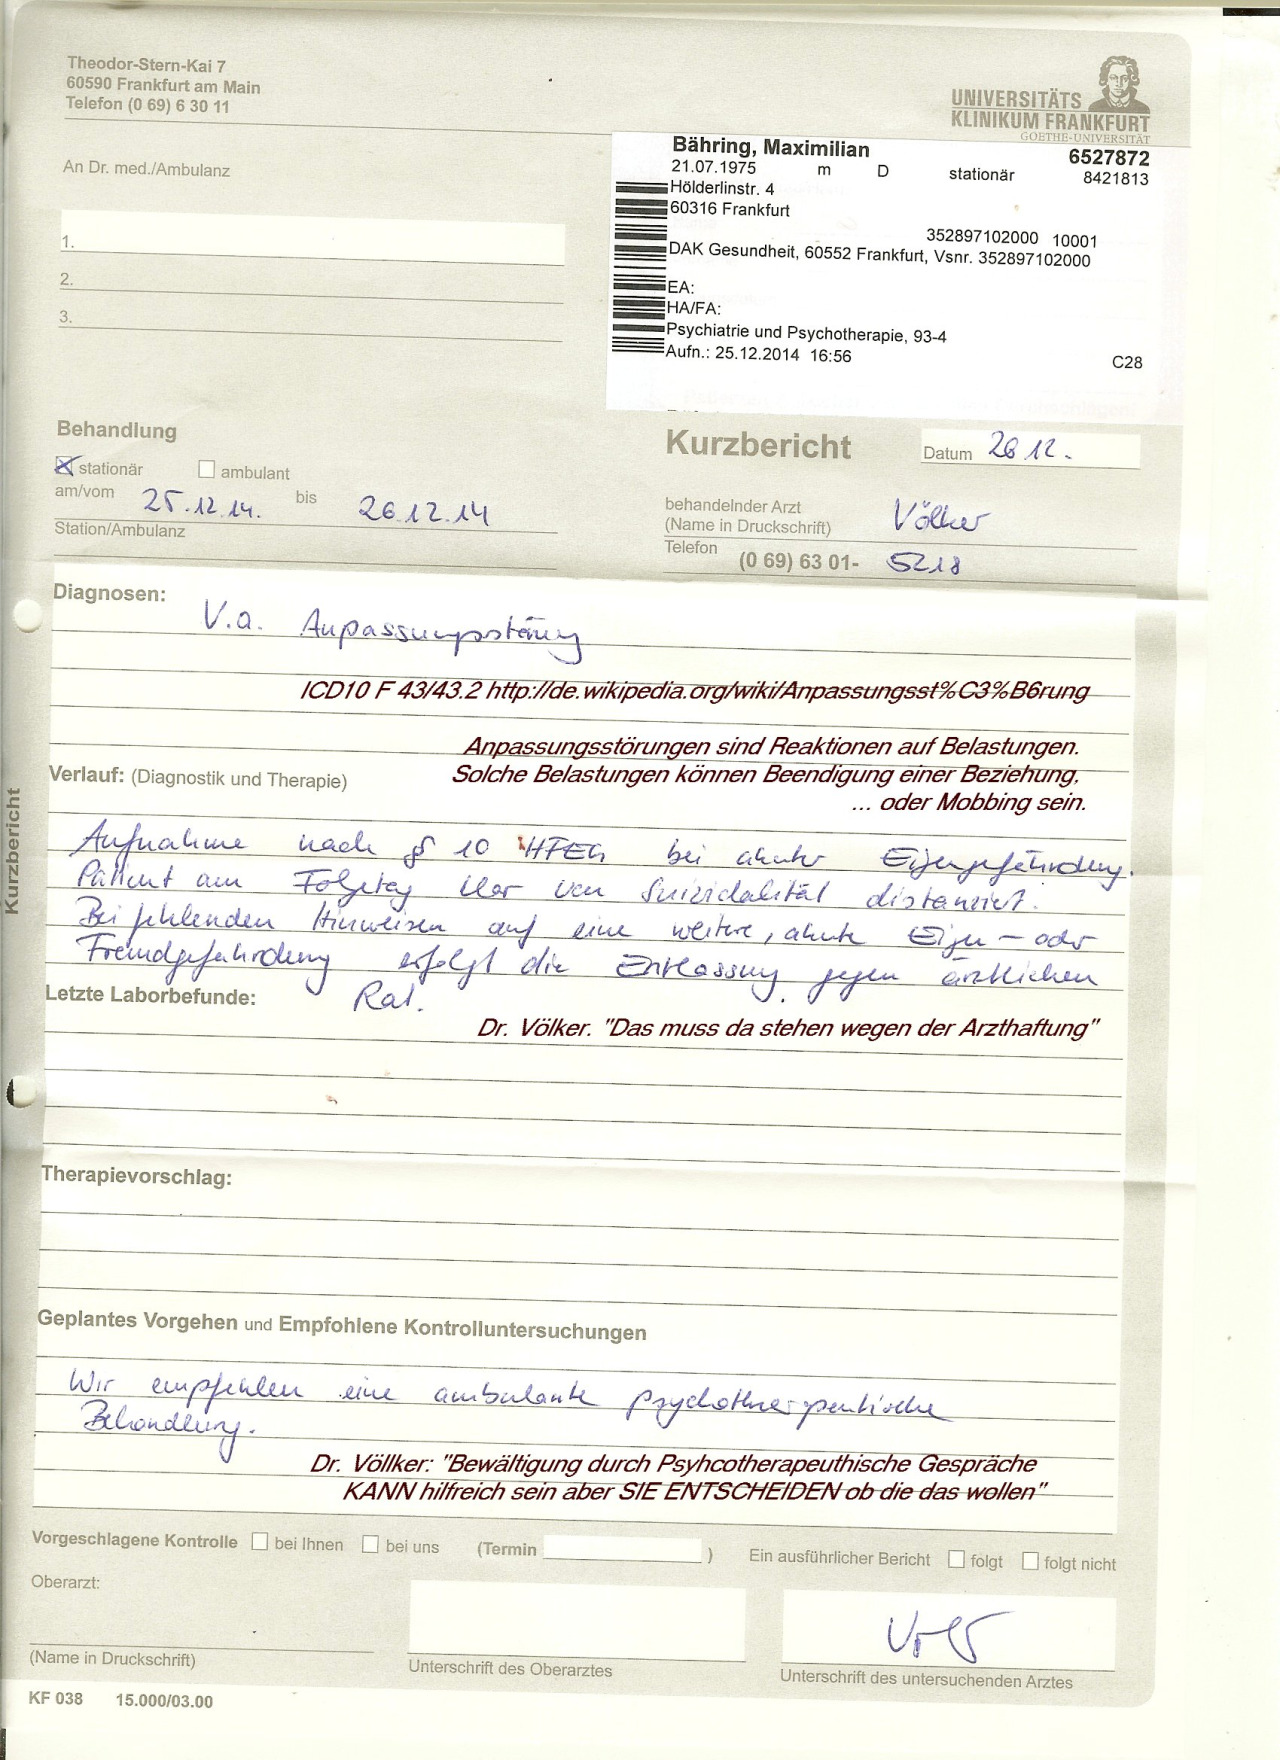 Theodor-Stern-Kai 7
60590 Frankfurt am Main
Telefon (0 69) 6 30 11
UNIVERSITÄTS
KLINIKUM FRANKFURT
GOETHE-UNIVERSITÄT
An Dr. med./Ambulanz
1.
2.
3.
Bähring, Maximilian 6527872
21.07.1975 m D stationär 8421813
Hölderlinstr. 4
60316 Frankfurt
352897102000 10001
DAK Gesundheit, 60552 Frankfurt, Vsnr. 352897102000
EA:
HA/FA:
Psychiatrie und Psychotherapie, 93-4
Aufn.: 25.12.2014 16:56
C28
Behandlung
stationär ambulant
am/vom 25.12.14. bis 26.12.14
Station/Ambulanz
Kurzbericht Datum 26 12.
behandelnder Arzt
(Name in Druckschrift) Völker
Telefon (0 69) 63 01- 5218
Kurzbericht
Diagnosen:
V.a. Anpassungsstörung
ICD10 F 43/43.2 http://de.wikipedia.org/wiki/Anpassungsst%C3%B6rung
Anpassungsstörungen sind Reaktionen auf Belastungen.
Verlauf: (Diagnostik und Therapie) Solche Belastungen können Beendigung einer Beziehung,
... oder Mobbing sein.
Aufnahme nach § 10 HFEG bei akuter Eigengefährdung.
Patient am Folgetag klar von Suizidalität distanziert.
Bei fehlenden Hinweisen auf eine weitere, akute Eigen- oder
Fremdgefährdung erfolgt die Entlassung gegen ärztlichen
Rat.
Letzte Laborbefunde:
Dr. Völker. "Das muss da stehen wegen der Arzthaftung"
Therapievorschlag:
Geplantes Vorgehen und Empfohlene Kontrolluntersuchungen
Wir empfehlen eine ambulante psychotherapeutische
Behandlung.
Dr. Völlker: "Bewältigung durch Psyhcotherapeuthische Gespräche
KANN hilfreich sein aber SIE ENTSCHEIDEN ob die das wollen"
Vorgeschlagene Kontrolle bei Ihnen bei uns (Termin ) Ein ausführlicher Bericht folgt folgt nicht
Oberarzt:
(Name in Druckschrift) Unterschrift des Oberarztes Unterschrift des untersuchenden Arztes
KF 038 15.000/03.00